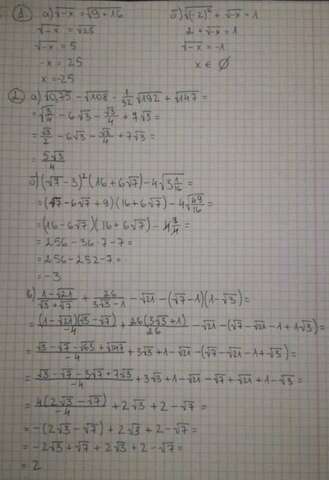 1. а) √-x = √9+16
√-x = √25
√-x = 5
-x = 25
x = -25
б) √(-2)² + √-x = 1
2 + √-x = 1
√-x = -1
x ∈ ∅
2. а) √0,75 - √108 - 1/√2 √192 + √147 =
= √3/4 - 6√3 - √3/4 + 7√3 =
= √3/2 - 6√3 - √3/4 + 7√3 =
= 5√3/4
б) (√7 - 3)² (16 + 6√7) - 4√3 1/16 =
= (√7 - 6√7 + 9)(16 + 6√7) - 4√49/16 =
= (16 - 6√7)(16 + 6√7) - 4 7/4 =
= 256 - 36 · 7 - 7 =
= 256 - 252 - 7 =
= -3
в) 1-√21/√3+√7 + 26/3√3-1 - √21 - (√7-1)(1-√3) =
= (1-√21)(√3-√7)/-4 + 26(3√3+1)/26 - √21 - (√7 - √21 - 1 + √3) =
= √3-√7-√63+√147/-4 + 3√3 + 1 - √21 - (√7 - √21 - 1 + √3) =
= √3-√7-3√7+7√3/-4 + 3√3 + 1 - √21 - √7 + √21 + 1 - √3 =
= 4(2√3-√7)/-4 + 2√3 + 2 - √7 =
= -(2√3 - √7) + 2√3 + 2 - √7 =
= -2√3 + √7 + 2√3 + 2 - √7 =
= 2